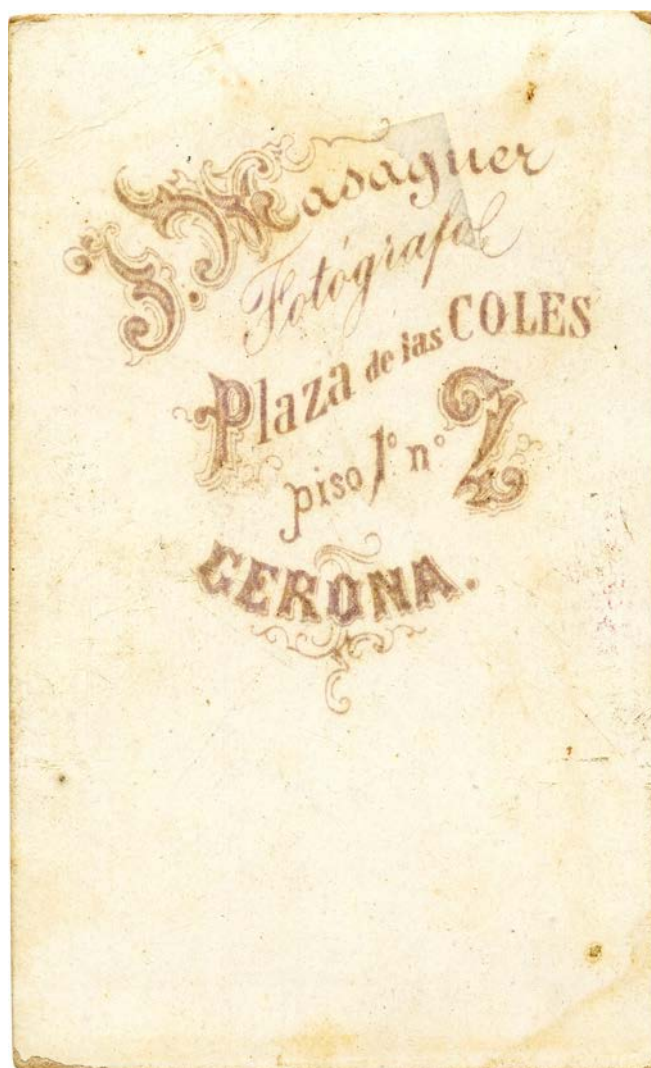 J. Masaguer
Fotógrafo
Plaza de las COLES
piso 1º nº 2
GERONA.